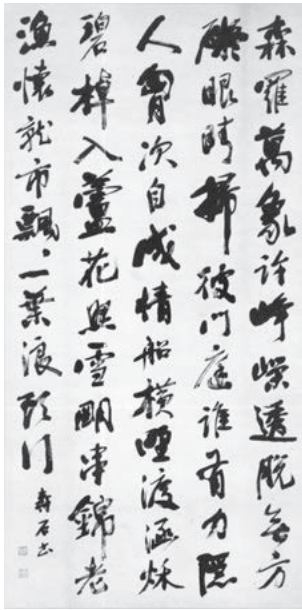 森羅萬象許崢嶸透脱無方
礙眼睛掃彼門庭誰有力隠
人胸次自成情船横野渡涵秋
碧棹入蘆花照雪明串錦老
漁懷就市飄〻一葉浪頭行
石書